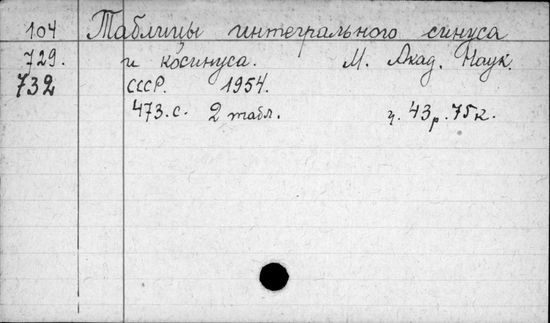 104 Таблицы интегрального синуса
729. и косинуса. М. Акад. Наук.
732 СССР. 1954.
473.с. 2 табл. ц. 43р.75к.